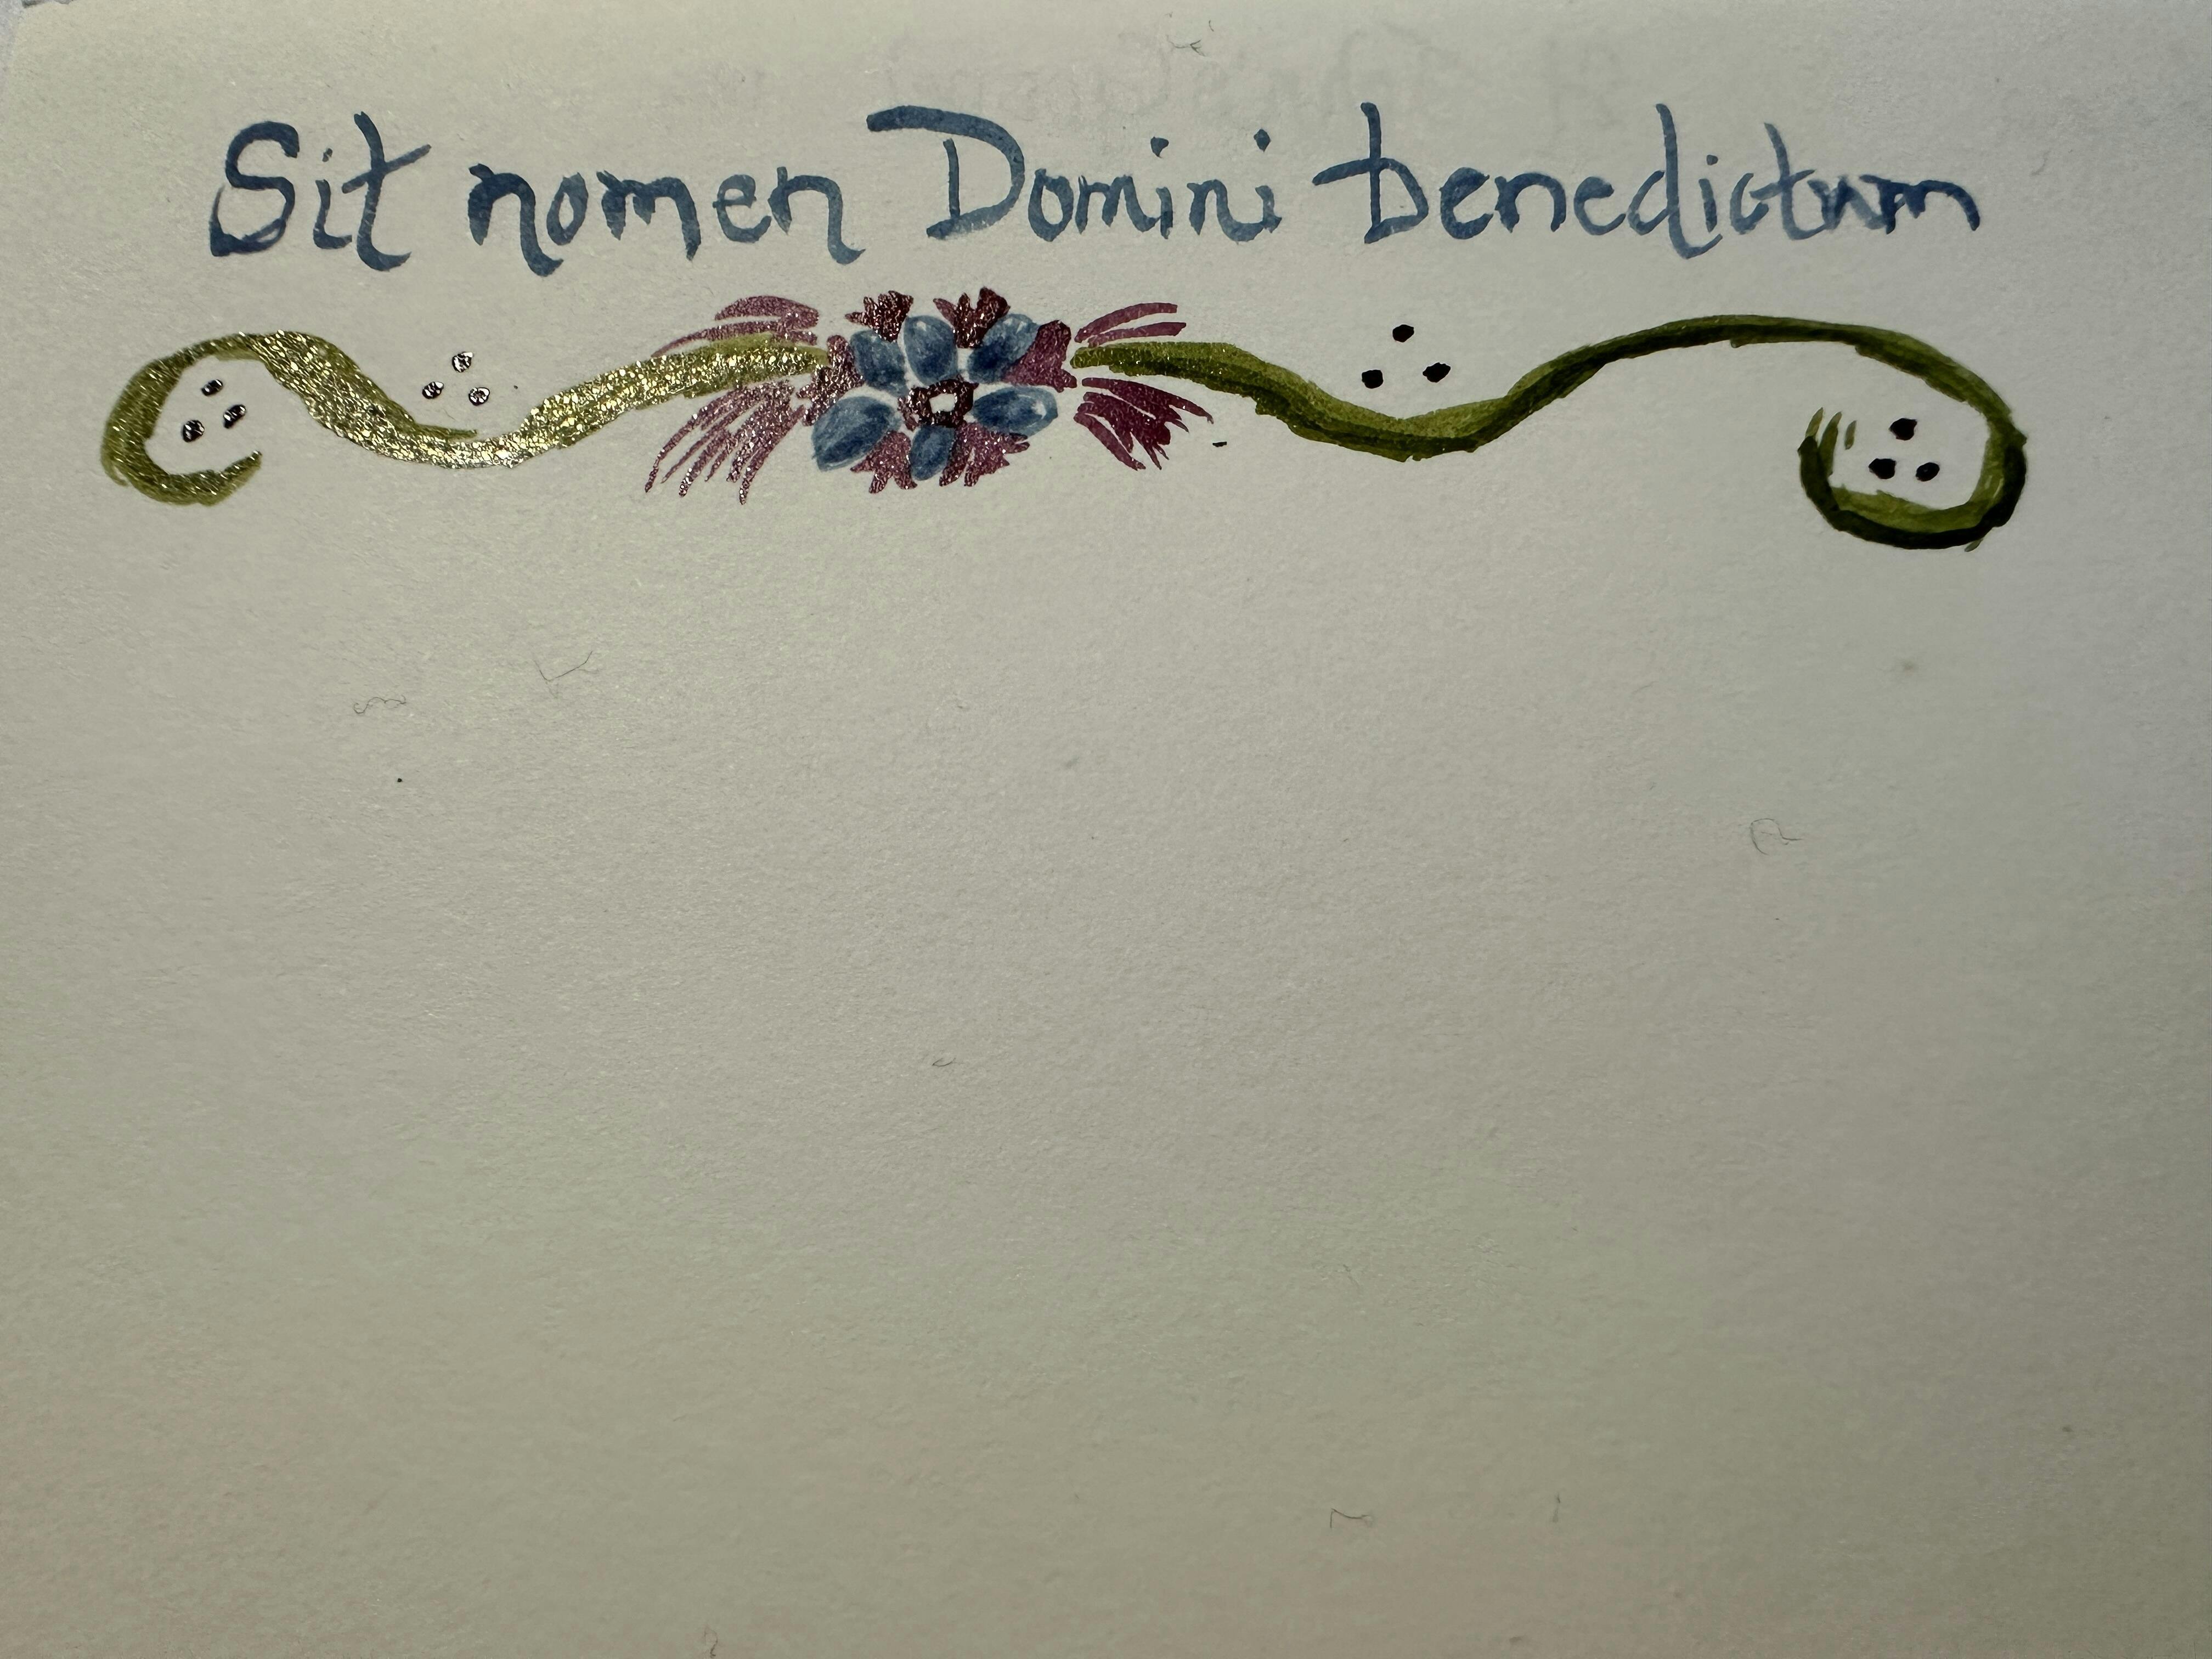 Sit nomen Domini benedictum